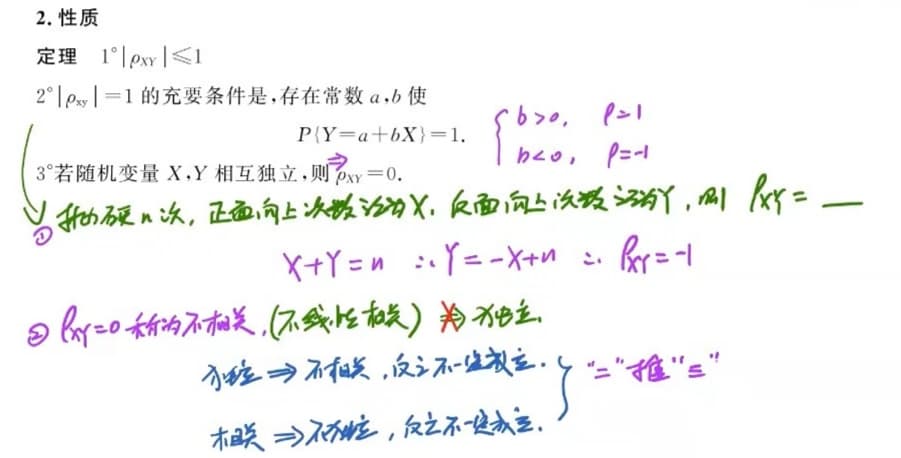 2. 性质
定理 1°|ρ_XY|≤1
2°|ρ_xy|=1 的充要条件是,存在常数 a,b 使
P{Y=a+bX}=1. { b>0, ρ=1
b<0, ρ=-1
3°若随机变量 X,Y 相互独立,则 ⇒ ρ_XY=0.
① 抛硬币 n 次, 正面向上次数记为X, 反面向上次数记为Y, 则 ρ_XY= __
X+Y=n ∴Y=-X+n ∴ρ_XY=-1
② ρ_XY=0 称为不相关,(不线性相关) ⇏ 独立.
独立 ⇒ 不相关, 反之不一定成立.
相关 ⇒ 不独立, 反之不一定成立. } "="推"≡"